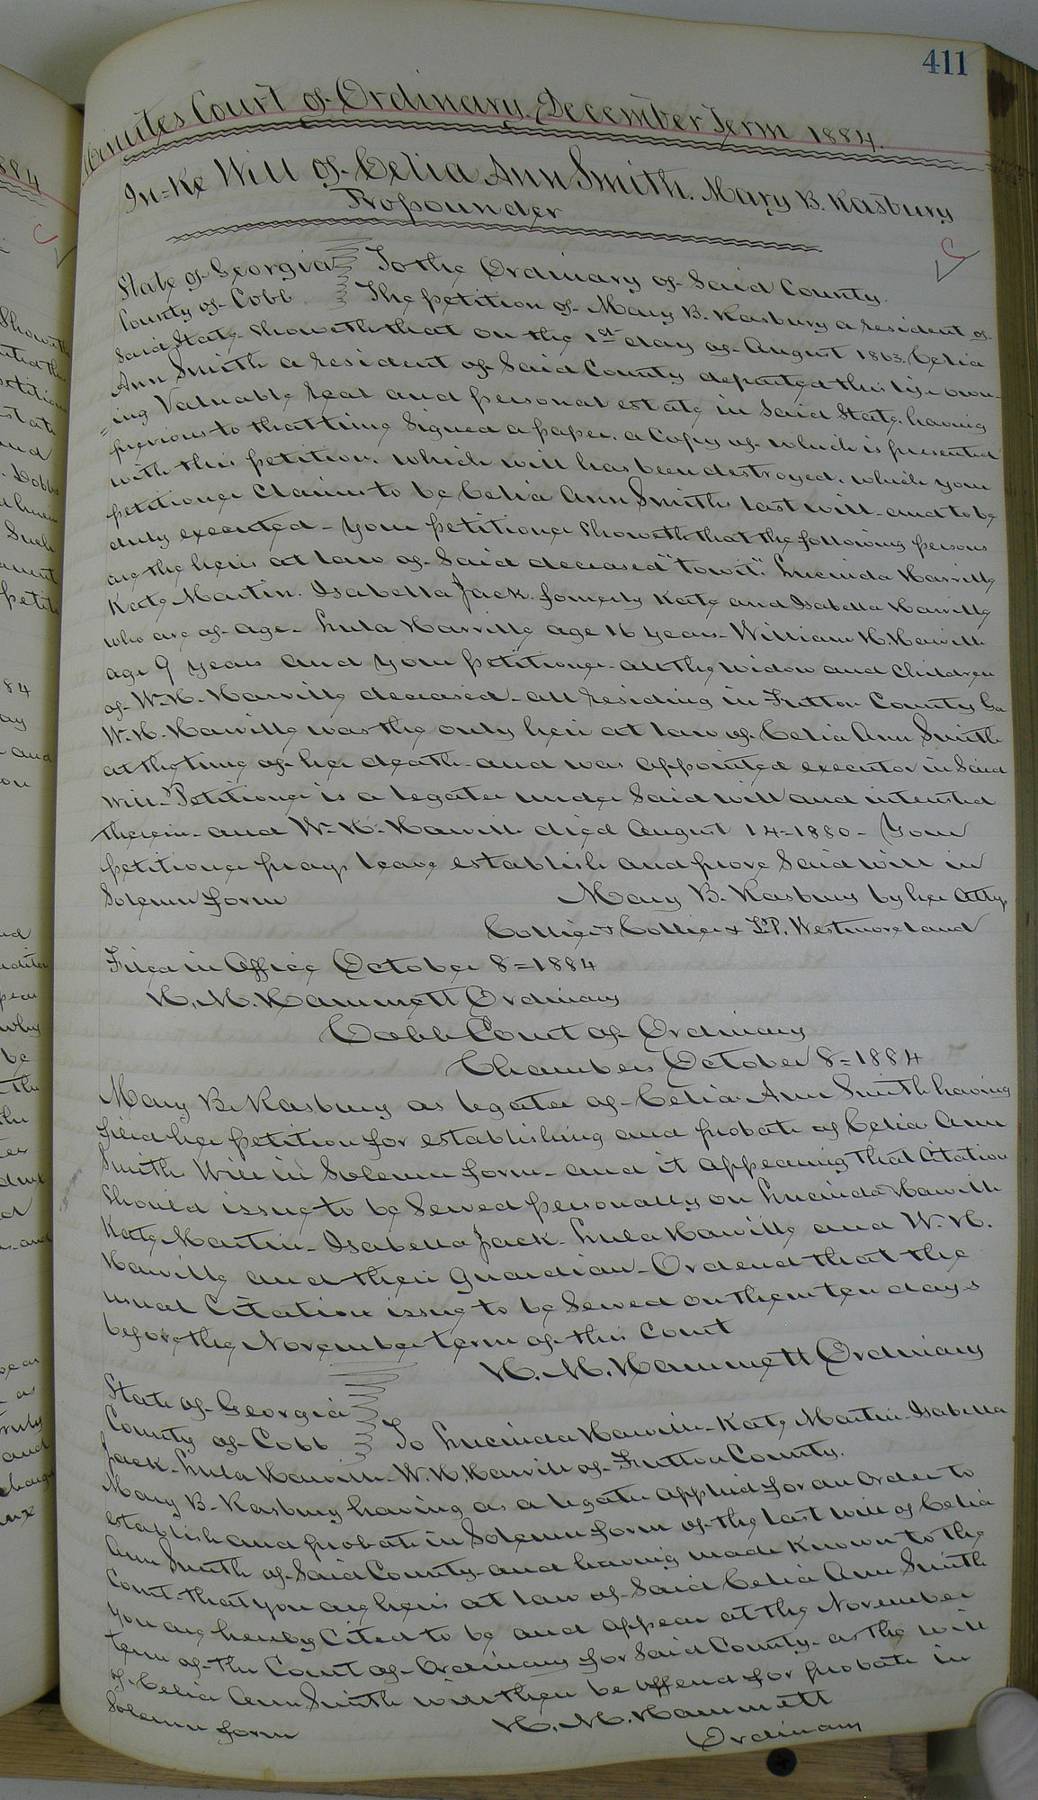 411
Minutes Court of Ordinary. December Term 1884.
In-Re Will of Celia Ann Smith. Mary B. Rasbury
Propounder
State of Georgia To the Ordinary of Said County.
County of Cobb The petition of Mary B. Rasbury a resident of
Said State showeth that on the 1st day of August 1863. Celia
Ann Smith a resident of Said County departed this life own-
=ing Valuable real and personal estate in Said State. having
previous to that time Signed a paper. a Copy of which is presented
with this petition. which will has been destroyed. which your
petitioner Claims to be Celia Ann Smiths last will and to be
duly executed - your petitioner Showeth that the following persons
are the heirs at law of Said deceased "towit." Lucinda Harville
Kate Martin. Isabella Jack. formerly Kate and Isabella Harville
who are of age. Lula Harville age 16 years - William H. Harvill
age 9 years and your petitioner all the widow and Children
of W.H. Harville deceased - all residing in Fulton County Ga
W.H. Harville was the only heir at law of Celia Ann Smith
at the time of her death and was appointed executor in Said
Will. Petitioner is a legatee under Said will and interested
therein - and W.H. Harvill died August 14=1880 - Your
petitioner prays leave establish and prove Said will in
Solemn form Mary B. Rasbury by her Atty.
Collier & Collier & T.P. Westmoreland
Filed in Office October 8=1884
H.M. Hammett Ordinary
Cobb Court of Ordinary
Chambers October 8=1884
Mary B. Rasbury as legatee of Celia Ann Smith having
filed her petition for establishing and probate of Celia Ann
Smith Will in Solemn form - and it appearing that Citation
Should issue to be Served personally on Lucinda Harvill
Kate Martin - Isabella Jack - Lula Harville and W.H.
Harville and their guardian - Ordered that the
usual Citation issue to be Served on them ten days
before the November term of this Court
H.M. Hammett Ordinary
State of Georgia
County of Cobb To Lucinda Harvill - Kate Martin - Isabella
Jack - Lula Harvill - W.H. Harvill of Fulton County.
Mary B. Rasbury having as a legatee applied for an order to
establish and probate in Solemn form of the last will of Celia
Ann Smith of Said County - and having made known to the
Court that you are heirs at law of Said Celia Ann Smith
You are hereby Cited to be and appear at the November
term of the Court of Ordinary for Said County - as the will
of Celia Ann Smith will then be offered for probate in
Solemn form H.M. Hammett
Ordinary